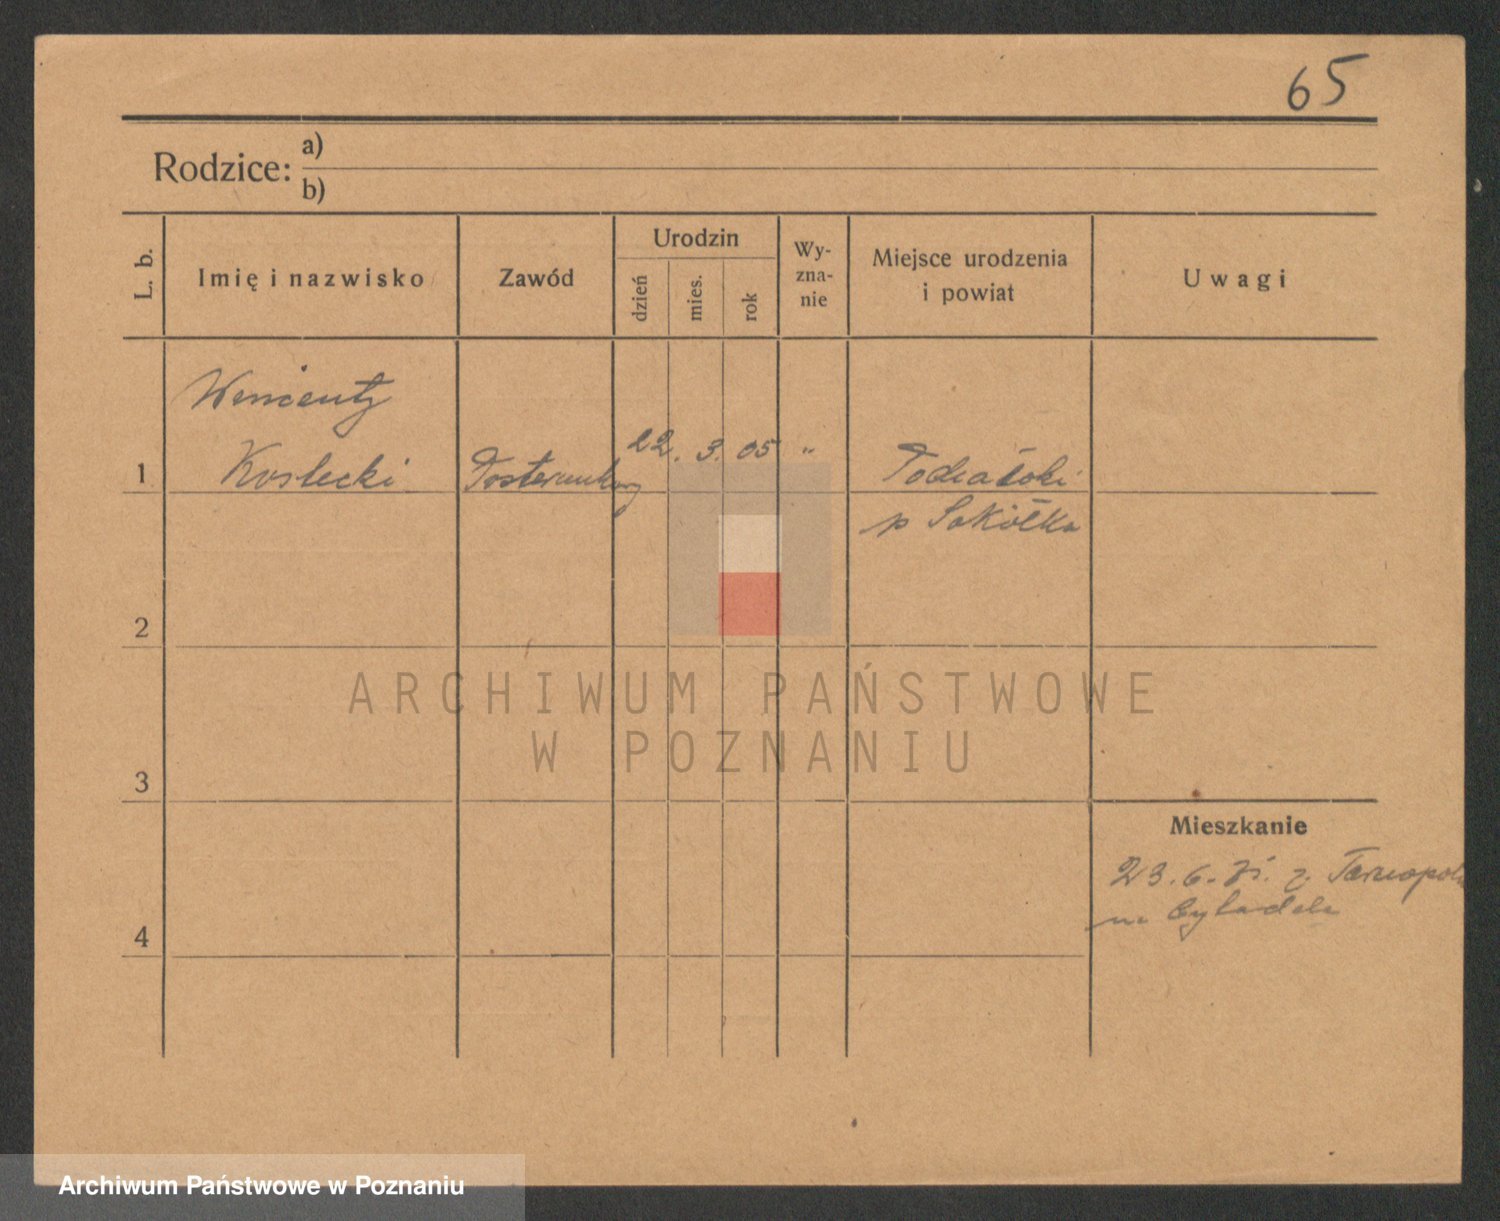 65
Rodzice: a)
b)
L. b.
Imię i nazwisko
Zawód
Urodzin
dzień
mies.
rok
Wy-
zna-
nie
Miejsce urodzenia
i powiat
Uwagi
1
Wincenty
Koslecki
Posterunkowy
22. 3. 05
"
p Sokółka
2
3
4
Mieszkanie
23. 6. z. Tarnopola
na Cytadele
ARCHIWUM PAŃSTWOWE
W POZNANIU
Archiwum Państwowe w Poznaniu